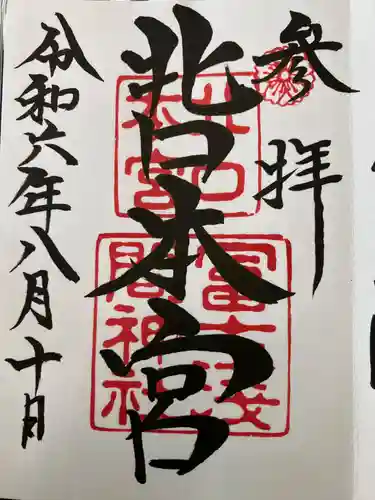 参拝
北口本宮
令和六年八月十日
北口
本宮
冨士浅
間神社